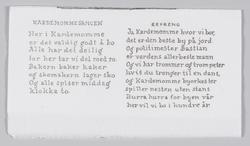 KARDEMOMMESANGEN
Her i Kardemomme
er det veldig godt å bo
Alle har det deilig
for her tar vi det med ro
Bakern baker kaker
og skomakern lager sko
Og alle spiser middag
klokka to.
REFRENG
Ja Kardemomme hvor vi bor
det er den beste by på jord.
Og politimester Bastian
er verdens allerbeste mann
Og vi har trommer og trompeter
hvis du trenger til en dant,
og Kardemomme byorkester
spiller nesten uten stans
Hurra hurra for byen vår
her vil vi bo i hundre år